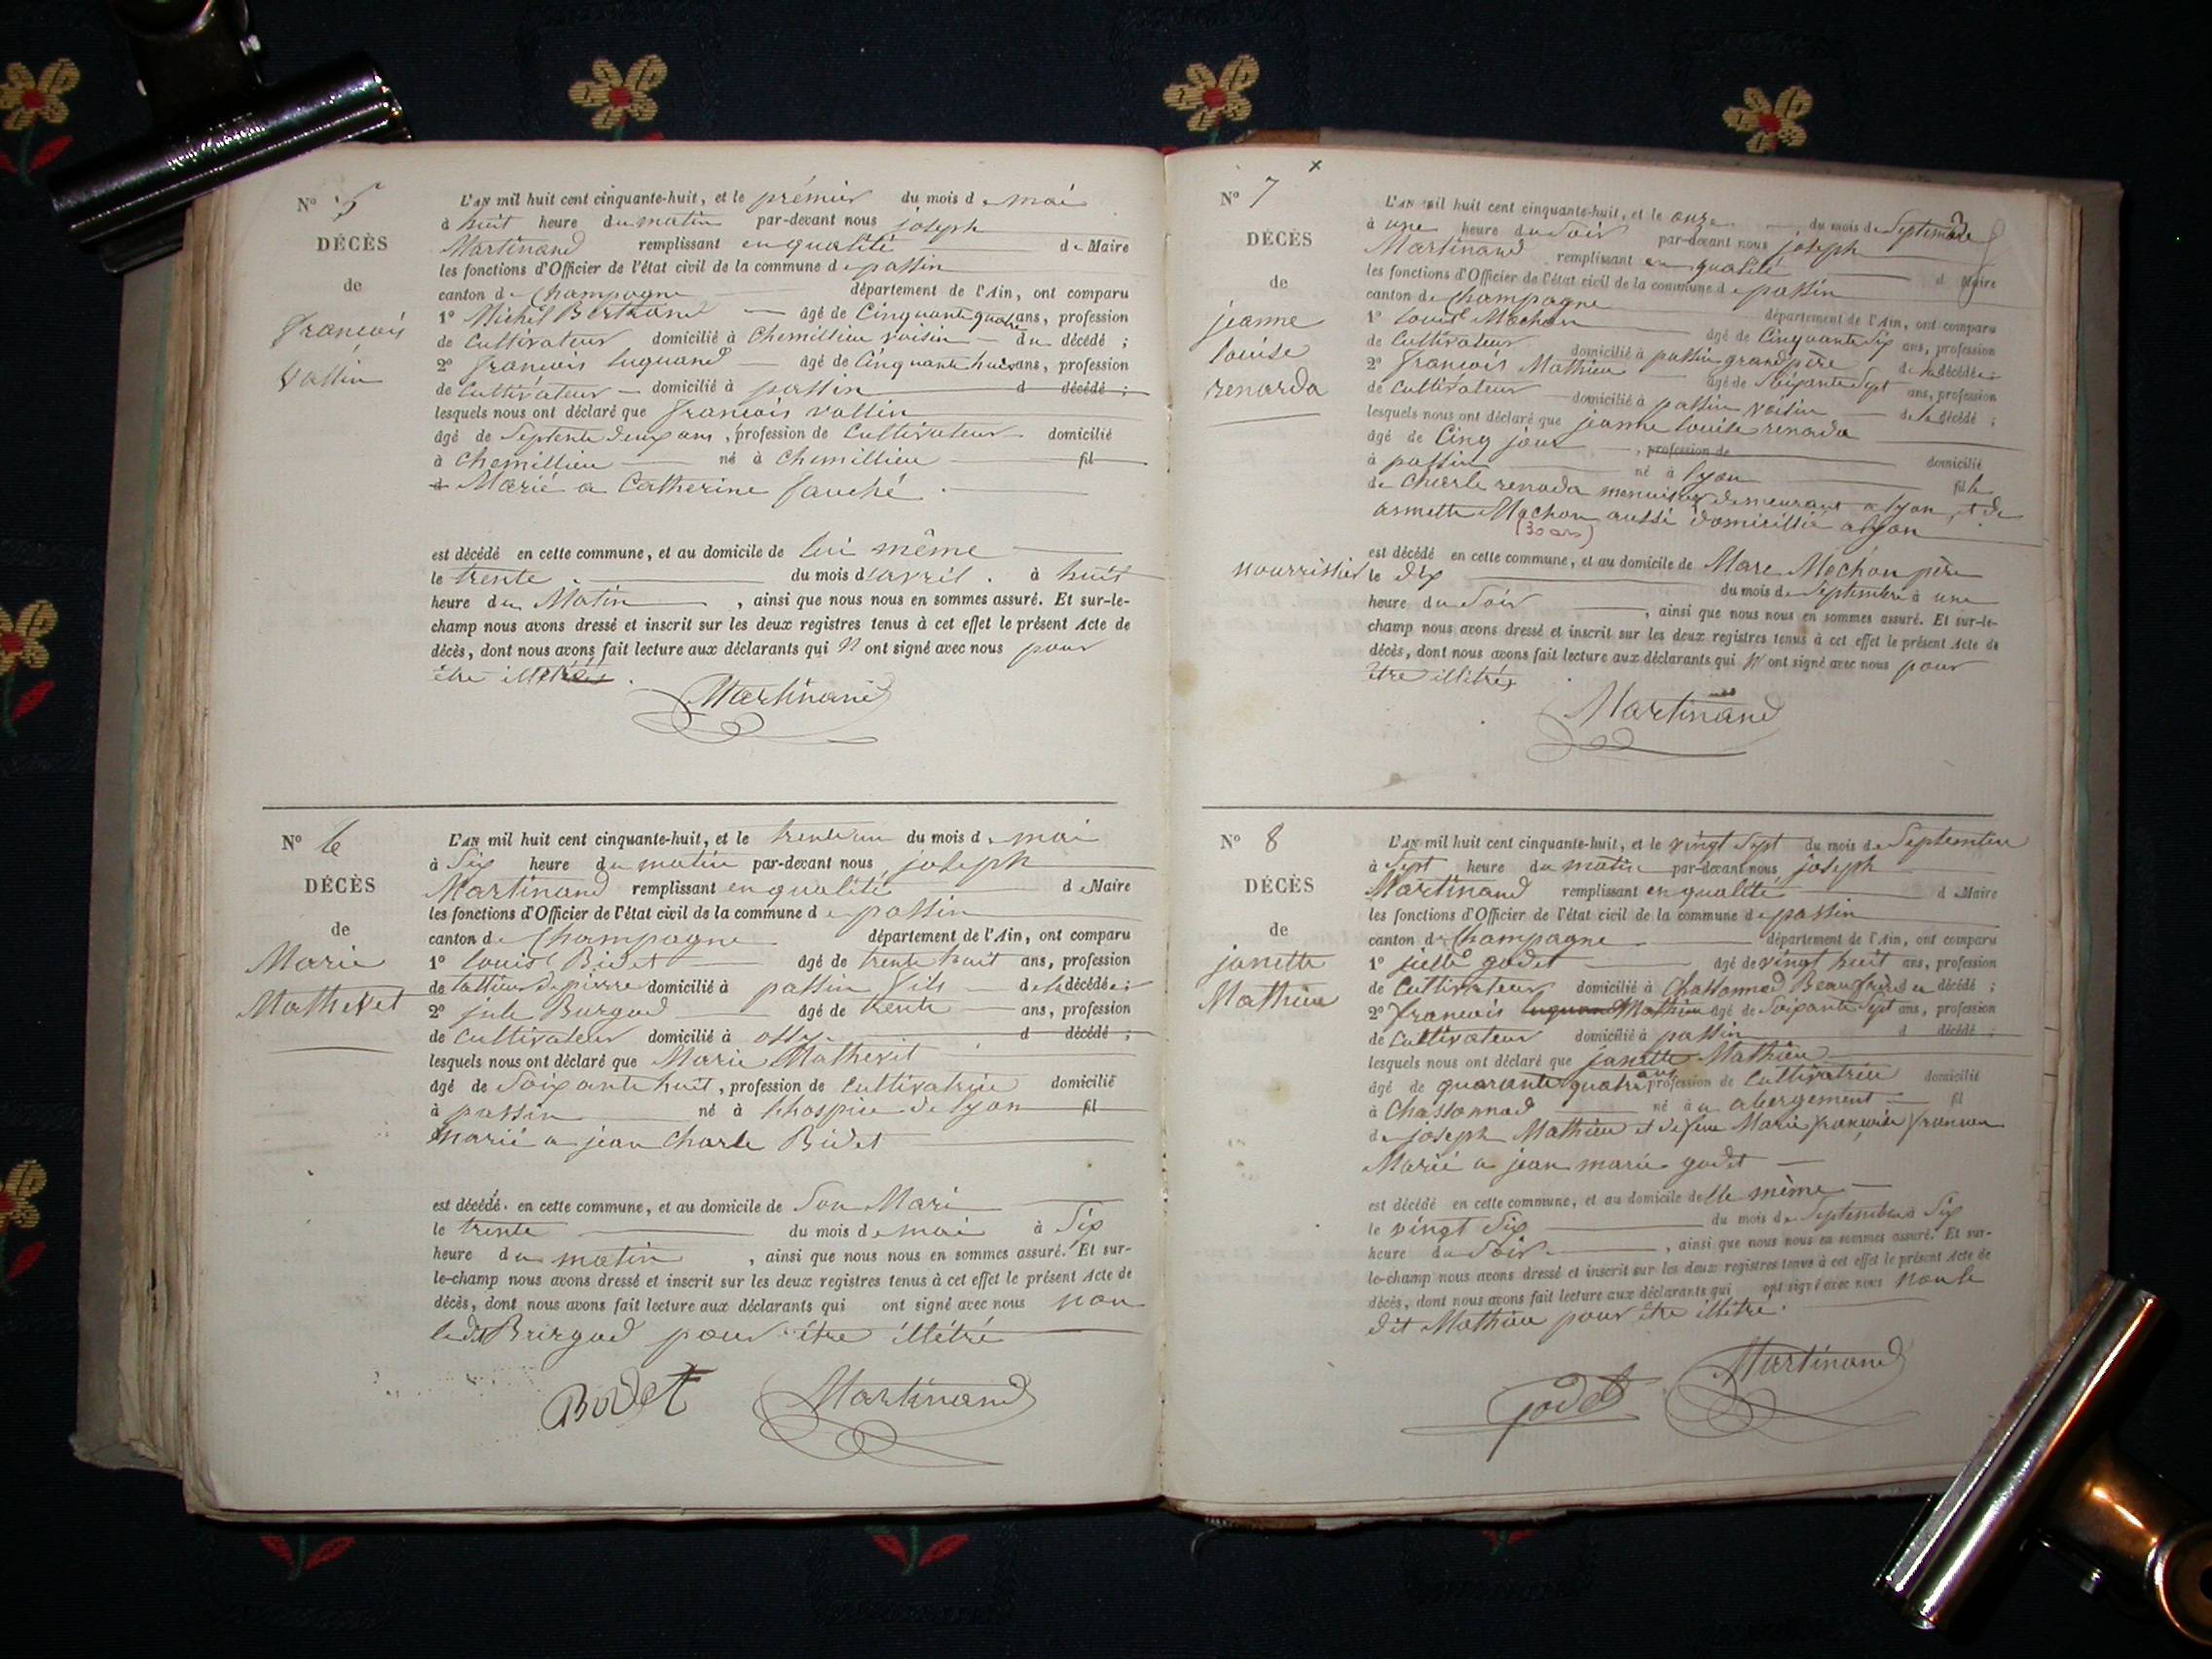 N° 5
DÉCÈS
de
François
Vallin
L'AN mil huit cent cinquante-huit, et le prémier du mois de mai
à huit heure du matin par-devant nous joseph
Martinand remplissant en qualité de Maire
les fonctions d'Officier de l'état civil de la commune de passin
canton de Champagne département de l'Ain, ont comparu
1° Michel Bertrand âgé de Cinquante quatre ans, profession
de Cultivateur domicilié à Chemillieu voisin du décédé ;
2° françois luquand âgé de Cinquante huit ans, profession
de Cultivateur domicilié à passin d décédé ;
lesquels nous ont déclaré que françois vallin
âgé de Septente deux ans, profession de Cultivateur domicilié
à Chemillieu né à Chemillieu fil
d Marié a Catherine fauché
est décédé en cette commune, et au domicile de lui même
le trente du mois d'avril . à huit
heure du Matin , ainsi que nous nous en sommes assuré. Et sur-le-
champ nous avons dressé et inscrit sur les deux registres tenus à cet effet le présent Acte de
décès, dont nous avons fait lecture aux déclarants qui N'ont signé avec nous pour
être illitrés.
Martinand
N° 6
DÉCÈS
de
Marie
Mathevet
L'AN mil huit cent cinquante-huit, et le trente un du mois de mai
à Six heure du matin par-devant nous joseph
Martinand remplissant en qualité de Maire
les fonctions d'Officier de l'état civil de la commune de passin
canton de Champagne département de l'Ain, ont comparu
1° louis Bidet âgé de trente huit ans, profession
de tallieur de pierre domicilié à passin fils de la décédée ;
2° jule Burgod âgé de trente ans, profession
de Cultivateur domicilié à d décédé ;
lesquels nous ont déclaré que Marie Mathevit
âgé de Soixante huit, profession de Cultivatrice domicilié
à passin né à l'hospice de lyon fil
marié a jean Charle Bidet
est décédé en cette commune, et au domicile de Son Mari
le trente du mois de mai à Six
heure du matin , ainsi que nous nous en sommes assuré. Et sur-
le-champ nous avons dressé et inscrit sur les deux registres tenus à cet effet le présent Acte de
décès, dont nous avons fait lecture aux déclarants qui ont signé avec nous non
ledit Burgod pour être illétré
Bidet Martinand
N° 7
DÉCÈS
de
jeanne
louise
renarda
nourrissier
L'AN mil huit cent cinquante-huit, et le onze du mois de Septembre
à une heure du Soir par-devant nous joseph
Martinand remplissant en qualité de Maire
les fonctions d'Officier de l'état civil de la commune de passin
canton de Champagne département de l'Ain, ont comparu
1° louis Machon âgé de Cinquante Six ans, profession
de Cultivateur domicilié à passin grand père de la décédée ;
2° françois Mathieu âgé de Soixante Sept ans, profession
de Cultivateur domicilié à passin voisin de la décédé ;
lesquels nous ont déclaré que jeanne louise renada
âgé de Cinq jour , profession de domicilié
à passin né à lyon fille
de Charle renada menuisier demeurant a lyon, et de
annette Machon aussi domicillié a lyon
(30 ans)
est décédé en cette commune, et au domicile de Marc Machon père
le dix du mois de Septembre à une
heure du Soir , ainsi que nous nous en sommes assuré. Et sur-le-
champ nous avons dressé et inscrit sur les deux registres tenus à cet effet le présent Acte de
décès, dont nous avons fait lecture aux déclarants qui N'ont signé avec nous pour
être illitrés
Martinand
N° 8
DÉCÈS
de
janette
Mathieu
L'AN mil huit cent cinquante-huit, et le vingt Sept du mois de Septembre
à Sept heure du matin par-devant nous joseph
Martinand remplissant en qualité de Maire
les fonctions d'Officier de l'état civil de la commune de passin
canton de Champagne département de l'Ain, ont comparu
1° godet âgé de vingt huit ans, profession
de Cultivateur domicilié à Chassonnod Beaufrère du décédé ;
2° françois luquand Mathieu âgé de Soixante Sept ans, profession
de Cultivateur domicilié à passin d décédé ;
lesquels nous ont déclaré que janette Mathieu
âgé de quarante quatre ans profession de Cultivatrice domicilié
à Chassonnod né à abergement fil
de joseph Mathieu et de feue Marie françoise
Marié a jean marie godet
est décédé en cette commune, et au domicile d'elle même
le vingt Six du mois de Septembre à Six
heure du Soir , ainsi que nous nous en sommes assuré. Et sur-
le-champ nous avons dressé et inscrit sur les deux registres tenus à cet effet le présent Acte de
décès, dont nous avons fait lecture aux déclarants qui ont signé avec nous non le
dit Mathieu pour être illétré.
Godet Martinand